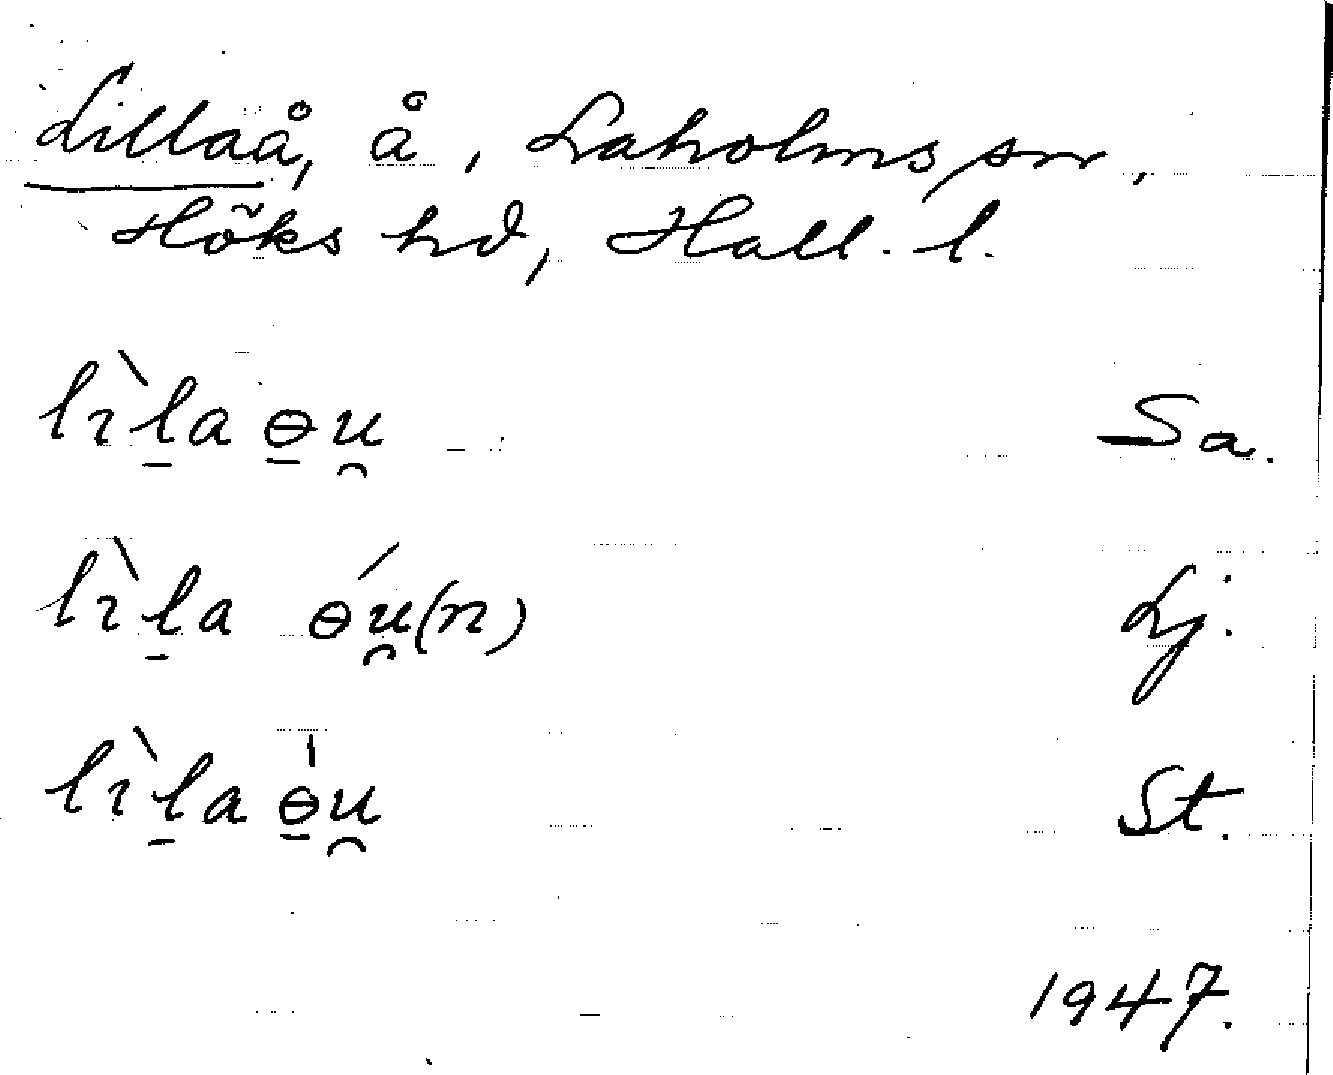 Lillaå, å, Laholms sn,
Höks hd, Hall. l.
lɪ̀l̠a ɵ̠u̯ Sa.
lɪ̀l̠a ɵ́u̯(n) Lj.
lɪ̀l̠a ɵ̠̍u̯ St.
1947.